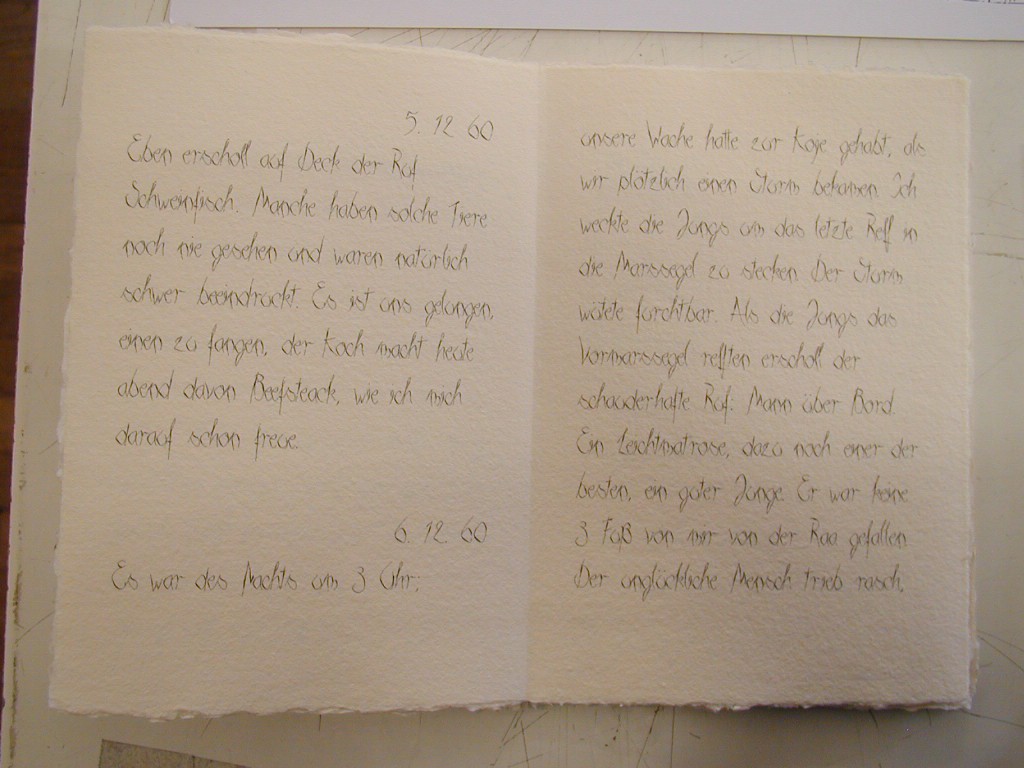 5. 12 60
Eben erscholl auf Deck der Ruf
Schweinfisch. Manche haben solche Tiere
noch nie gesehen und waren natürlich
schwer beeindruckt. Es ist uns gelungen,
einen zu fangen, der Koch macht heute
abend davon Beefsteack, wie ich mich
darauf schon freue.
6. 12 60
Es war des Nachts um 3 Uhr,
unsere Wache hatte zur Koje gehabt, als
wir plötzlich einen Sturm bekamen. Ich
weckte die Jungs um das letzte Reff in
die Marssegel zu stecken. Der Sturm
wütete furchtbar. Als die Jungs das
Vormarssegel refften erscholl der
schauderhafte Ruf: Mann über Bord.
Ein Leichtmatrose, dazu noch einer der
besten, ein guter Junge. Er war keine
3 Fuß von mir von der Raa gefallen.
Der unglückliche Mensch trieb rasch,